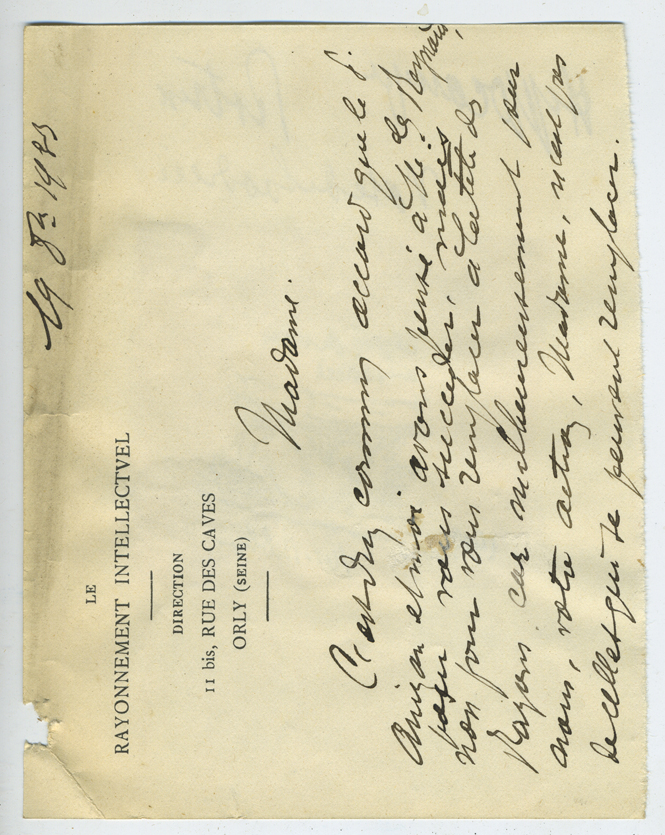 19 8re
LE
RAYONNEMENT INTELLECTVEL
DIRECTION
11 bis, RUE DES CAVES
ORLY (SEINE)
Madame.
C'est d'un commun accord que le P.
Anizan et moi avons pensé à Mlle de
pour vous succéder, mais
non pour vous remplacer à la tête des
Rayons, car malheureusement pour
nous, votre action, Madame, n'est pas
de celles qui se peuvent remplacer.